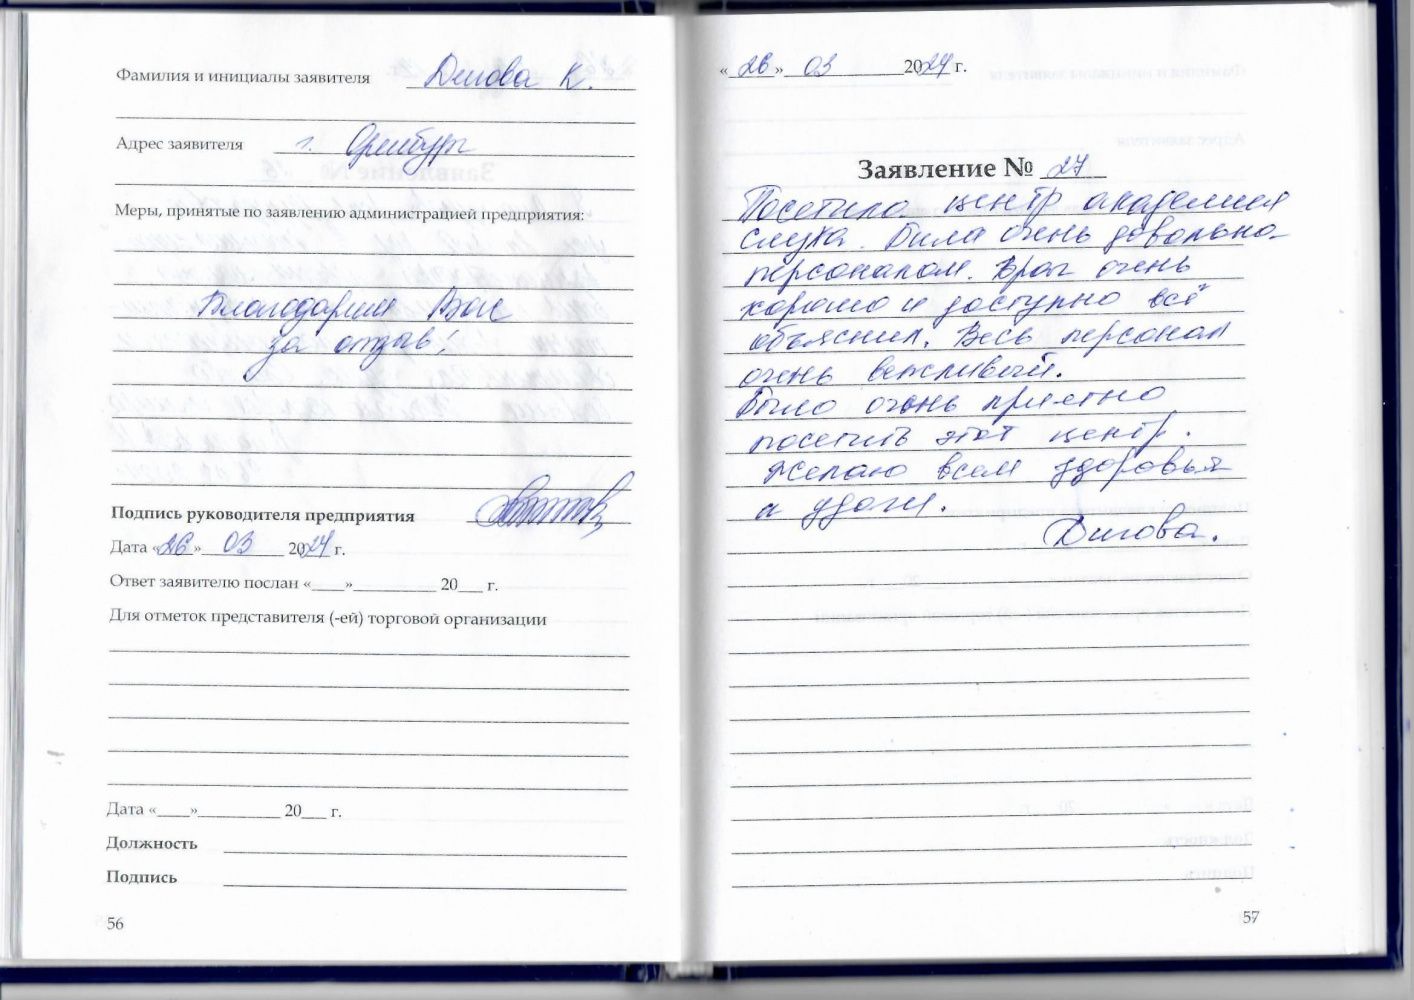 Фамилия и инициалы заявителя К.
Адрес заявителя г. Оренбург
Меры, принятые по заявлению администрацией предприятия:
Благодарим Вас
за отзыв!
Подпись руководителя предприятия
Дата «26» 03 2024 г.
Ответ заявителю послан «____»__________ 20___ г.
Для отметок представителя (-ей) торговой организации
Дата «____»__________ 20___ г.
Должность
Подпись
56
«26» 03 2024 г.
Заявление № 27
Посетила центр академия
слуха. Была очень довольна
персоналом. Врач очень
хорошо и доступно всё
объяснил. Весь персонал
очень вежливый.
Было очень приятно
посетить этот центр.
Желаю всем здоровья
и удачи.
57